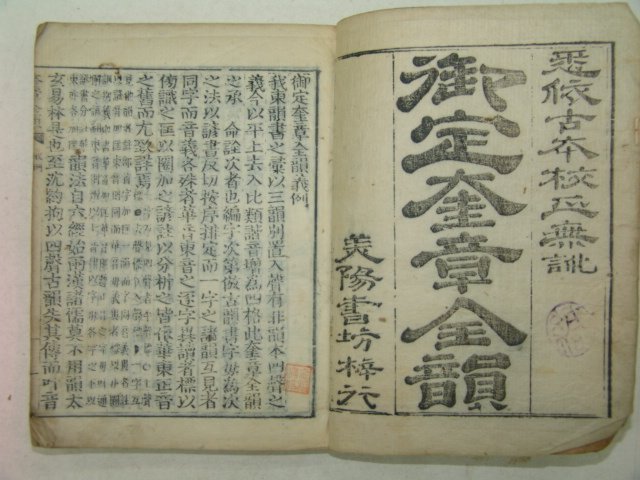 悉依古本校正無訛
御定奎章全韻
美陽書坊梓行
御定奎章全韻義例
我東韻書之彙以三韻別置入聲有非韻本四聲之
義今以平上去入比類諧音增爲四格此奎章全韻
之承 命詮次者也編字次第依古韻書字母爲次
之法以諺書反切按序排定而一字之諸韻互見者
同字而音義各殊者華音東音之逐字異讀者標以
傍識之匡以圈加之諺註以分析之皆依華東正音
之舊而尤致詳焉
韻法自六經始而漢諸儒莫不用韻太
玄易林是也至沈約拘以四聲古韻失其傳而叶音